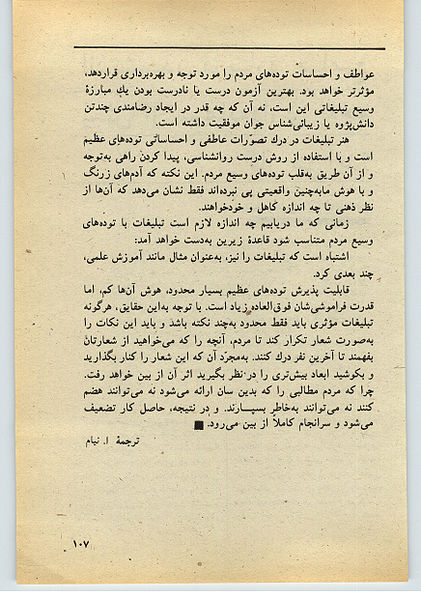 عواطف و احساسات توده‌های مردم را مورد توجه و بهره‌برداری قراردهد،
مؤثرتر خواهد بود. بهترین آزمون درست یا نادرست بودن یك مبارزهٔ
وسیع تبلیغاتی این است، نه آن که چه قدر در ایجاد رضامندی چندتن
دانش‌پژوه یا زیبائی‌شناس جوان موفقیت داشته است.
هنر تبلیغات در درك تصورات عاطفی و احساساتی توده‌های عظیم
است و با استفاده از روش درست روانشناسی، پیدا کردن راهی به‌توجه
و از آن طریق به‌قلب توده‌های وسیع مردم. این نکته که آدم‌های زرنگ
و با هوش مابه‌چنین واقعیتی پی نبرده‌اند فقط نشان می‌دهد که آن‌ها از
نظر ذهنی تا چه اندازه کاهل و خودخواهند.
زمانی که ما دریابیم چه اندازه لازم است تبلیغات با توده‌های
وسیع مردم متناسب شود قاعدهٔ زیرین به‌دست خواهد آمد:
اشتباه است که تبلیغات را نیز، به‌عنوان مثال مانند آموزش علمی،
چند بعدی کرد.
قابلیت پذیرش توده‌های عظیم بسیار محدود، هوش آن‌ها کم، اما
قدرت فراموشی‌شان فوق‌العاده زیاد است. با توجه به‌این حقایق، هرگونه
تبلیغات مؤثری باید فقط محدود به‌چند نکته باشد و باید این نکات را
به‌صورت شعار تکرار کند تا مردم، آنچه را که می‌خواهید از شعارتان
بفهمند تا آخرین نفر درك کنند. به‌مجرّد آن که این شعار را کنار بگذارید
و بکوشید ابعاد بیش‌تری را در نظر بگیرید اثر آن از بین خواهد رفت.
چرا که مردم مطالبی را که بدین سان ارائه می‌شود نه می‌توانند هضم
کنند نه می‌توانند به‌خاطر بسپارند. و در نتیجه، حاصل کار تضعیف
می‌شود و سرانجام کاملاً از بین می‌رود. ■
ترجمهٔ ا. نیام
۱۰۷